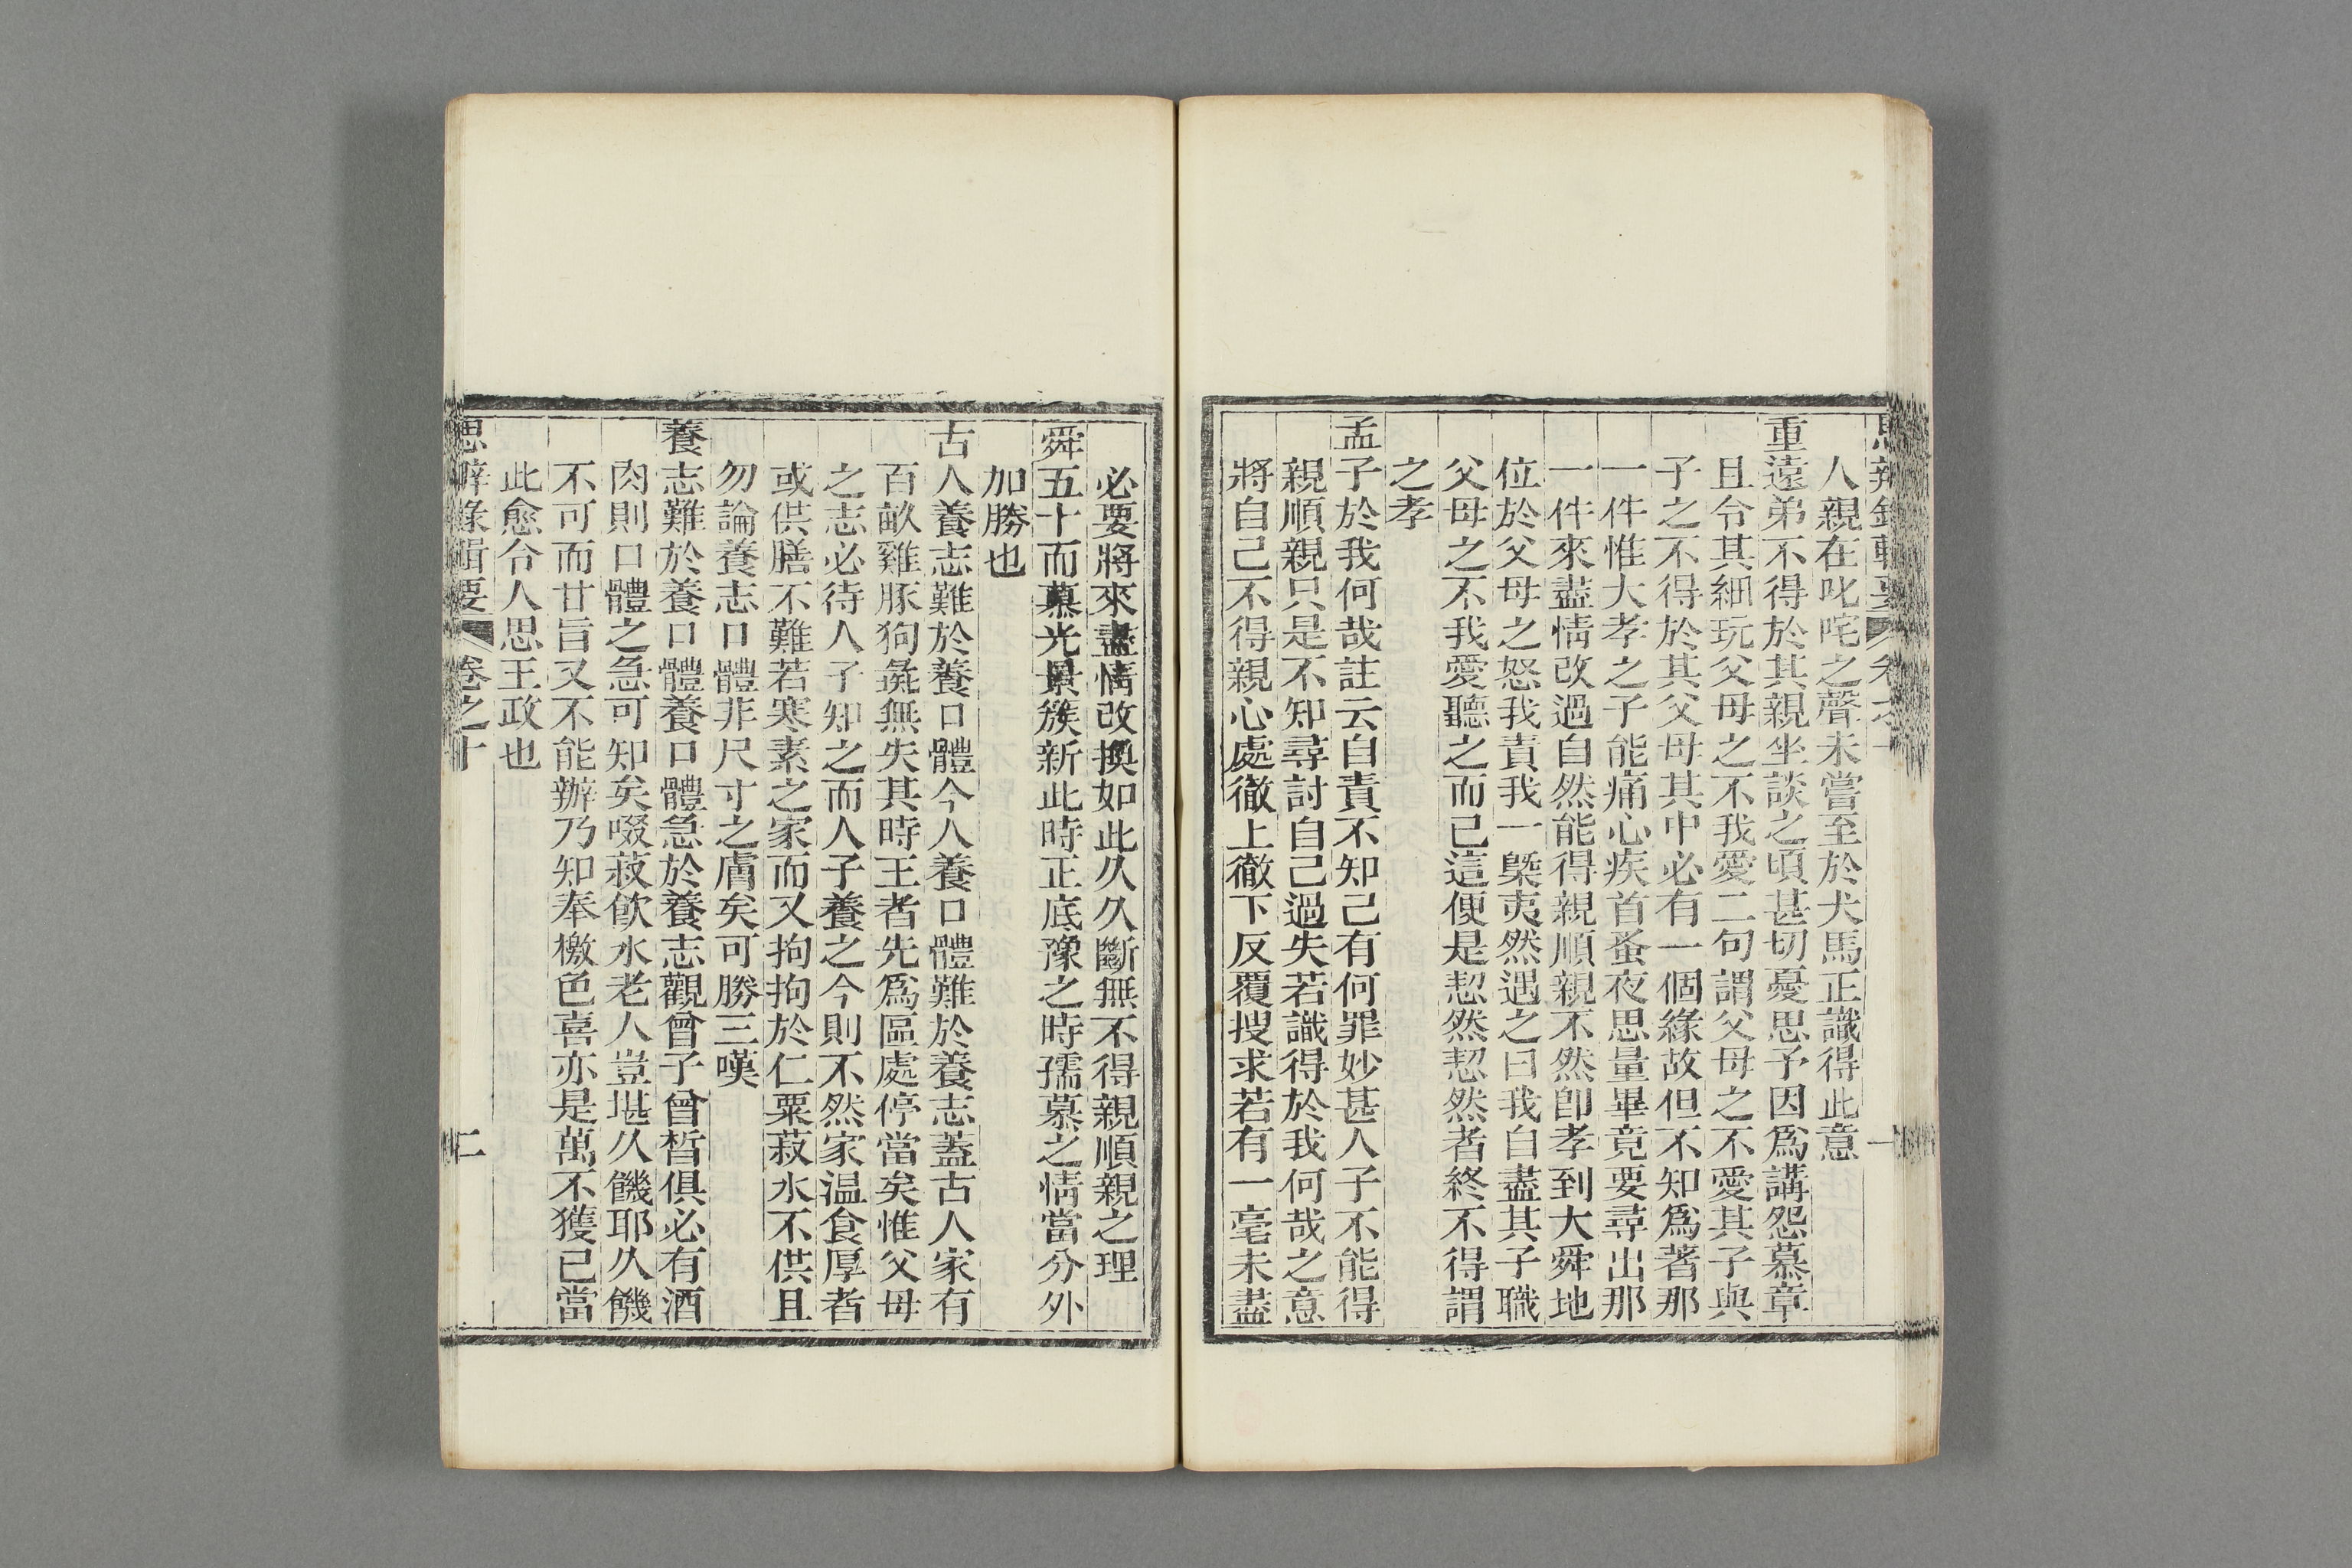 人親在叱咤之聲未嘗至於犬馬正識得此意
重遠弟不得於其親坐談之頃甚切憂思予因爲講怨慕章
且令其細玩父母之不我愛二句謂父母之不愛其子與
子之不得於其父母其中必有一個緣故但不知爲著那
一件惟大孝之子能痛心疾首蚤夜思量畢竟要尋出那
一件來盡情改過自然能得親順親不然卽孝到大舜地
位於父母之怒我責我一槩夷然遇之曰我自盡其子職
父母之不我愛聽之而已這便是恝然恝然者終不得謂
之孝
孟子於我何哉註云自責不知己有何罪妙甚人子不能得
親順親只是不知尋討自己過失若識得於我何哉之意
將自己不得親心處徹上徹下反覆搜求若有一毫未盡
必要將來盡情改換如此久久斷無不得親順親之理
舜五十而慕光景簇新此時正底豫之時孺慕之情當分外
加勝也
古人養志難於養口體今人養口體難於養志蓋古人家有
百畝雞豚狗彘無失其時王者先爲區處停當矣惟父母
之志必待人子知之而人子養之今則不然家温食厚者
或供膳不難若寒素之家而又拘拘於仁粟菽水不供且
勿論養志口體非尺寸之膚矣可勝三嘆
養志難於養口體養口體急於養志觀曾子曾晳俱必有酒
肉則口體之急可知矣啜菽飮水老人豈堪久饑耶久饑
不可而甘旨又不能辦乃知奉檄色喜亦是萬不獲已當
此愈令人思王政也
思辨錄輯要 卷之十 二